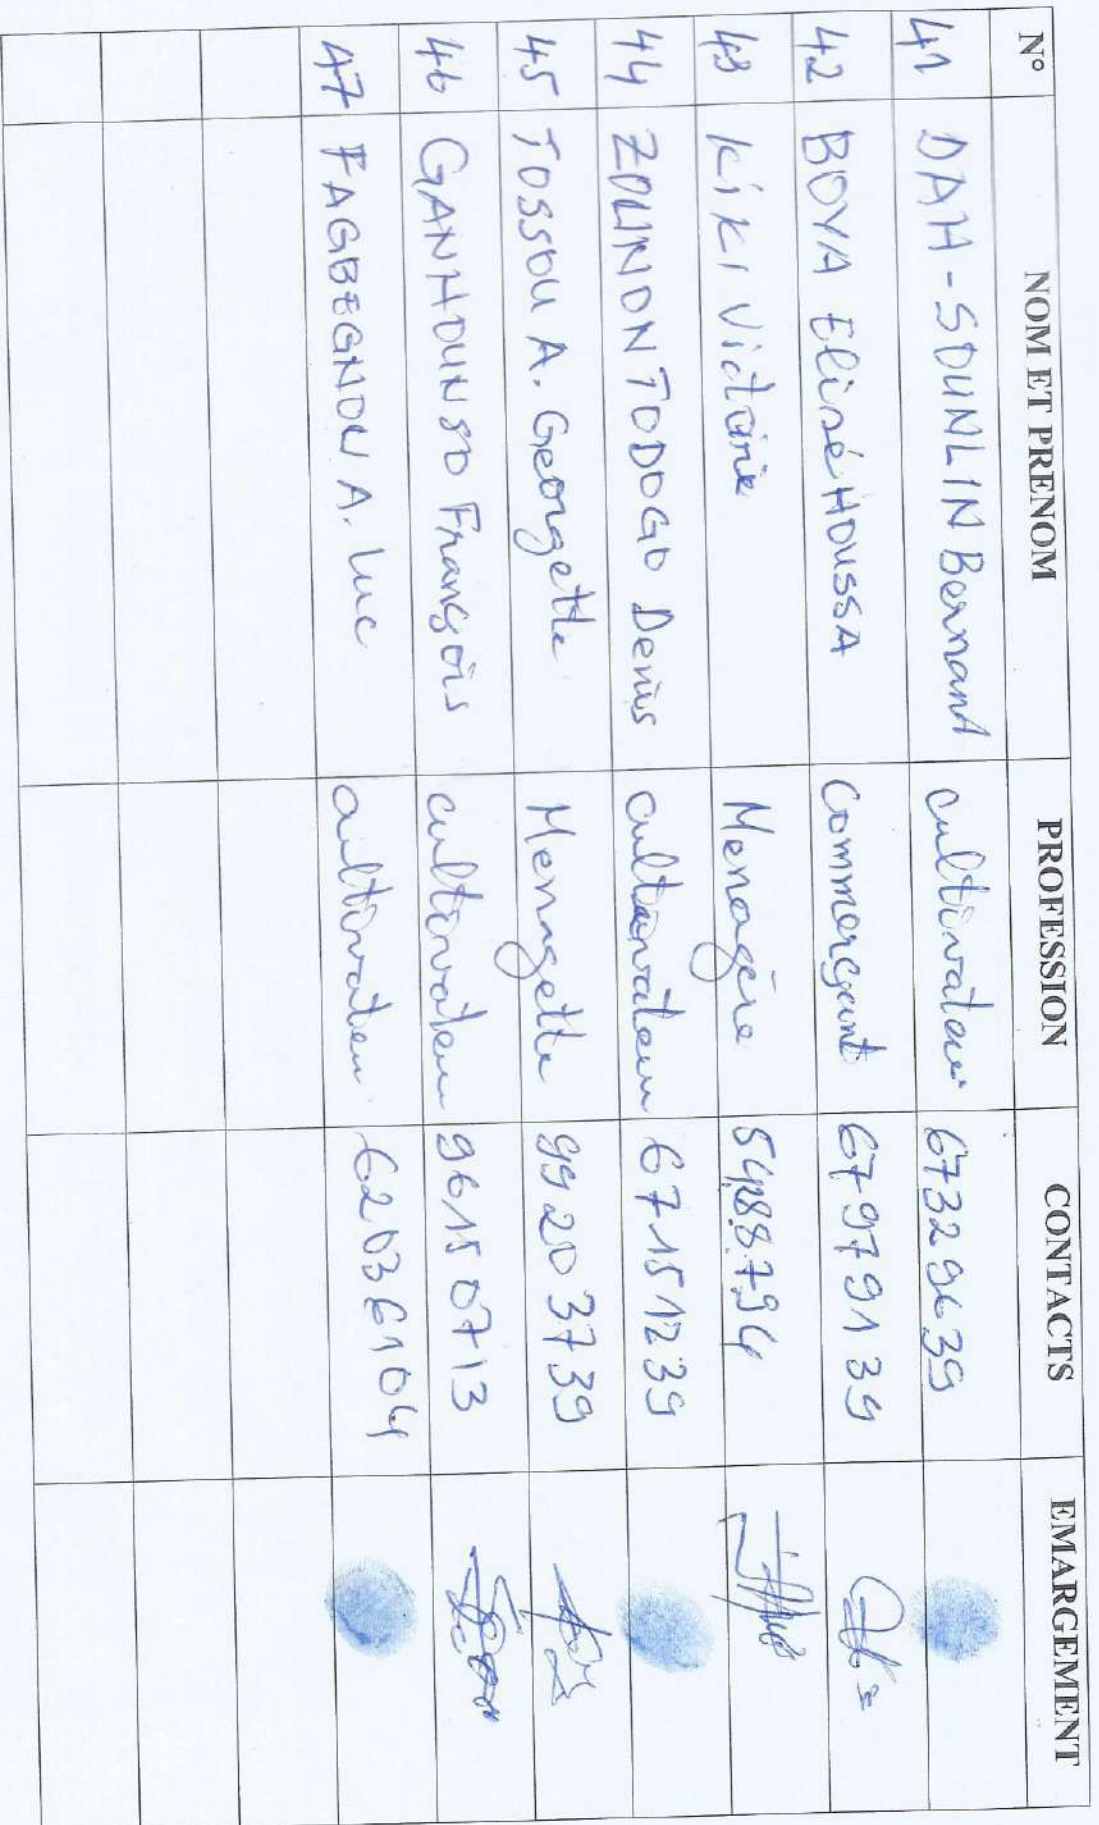 N° NOM ET PRENOM PROFESSION CONTACTS EMARGEMENT
41 DAH-SOUNLIN Bernand cultivateur 67329639
42 BOYA Elisé HOUSSA Commerçant 67979139
43 KiKi Victoire Menagère 54288794
44 ZOUNON TODOGO Denis cultivateur 67151239
45 TOSSOU A. Georgette Menagette 99203739
46 GANHOUNSO François cultivateur 96150713
47 FAGBEGNOU A. Luc cultivateur 62036104